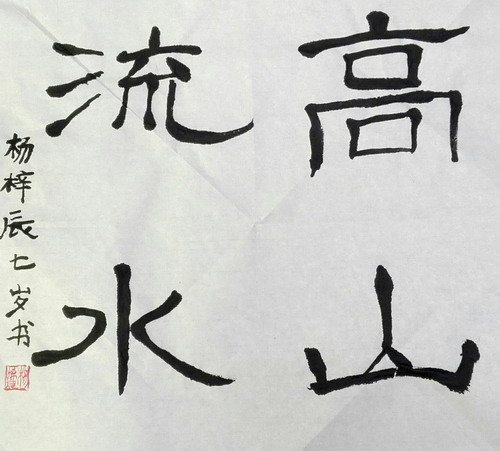 高山
流水
杨梓辰七岁书